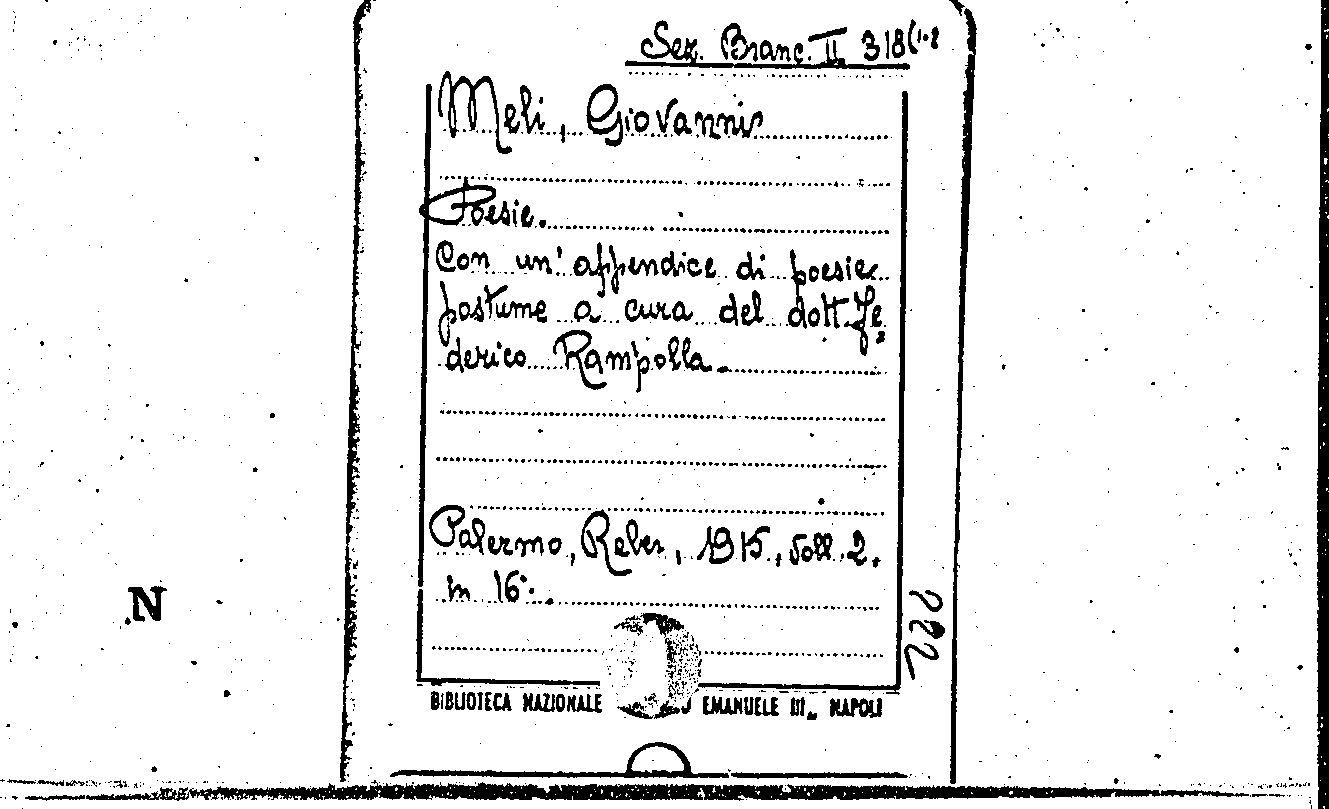 Sez. Branc. II 318(1-2
Meli, Giovanni
Poesie.
Con un' appendice di poesie
postume a cura del dott. Fe
derico Rampolla.
Palermo, Reber, 1915, voll. 2.
in 16°.
N
222
BIBLIOTECA NAZIONALE EMANUELE III„ NAPOLI